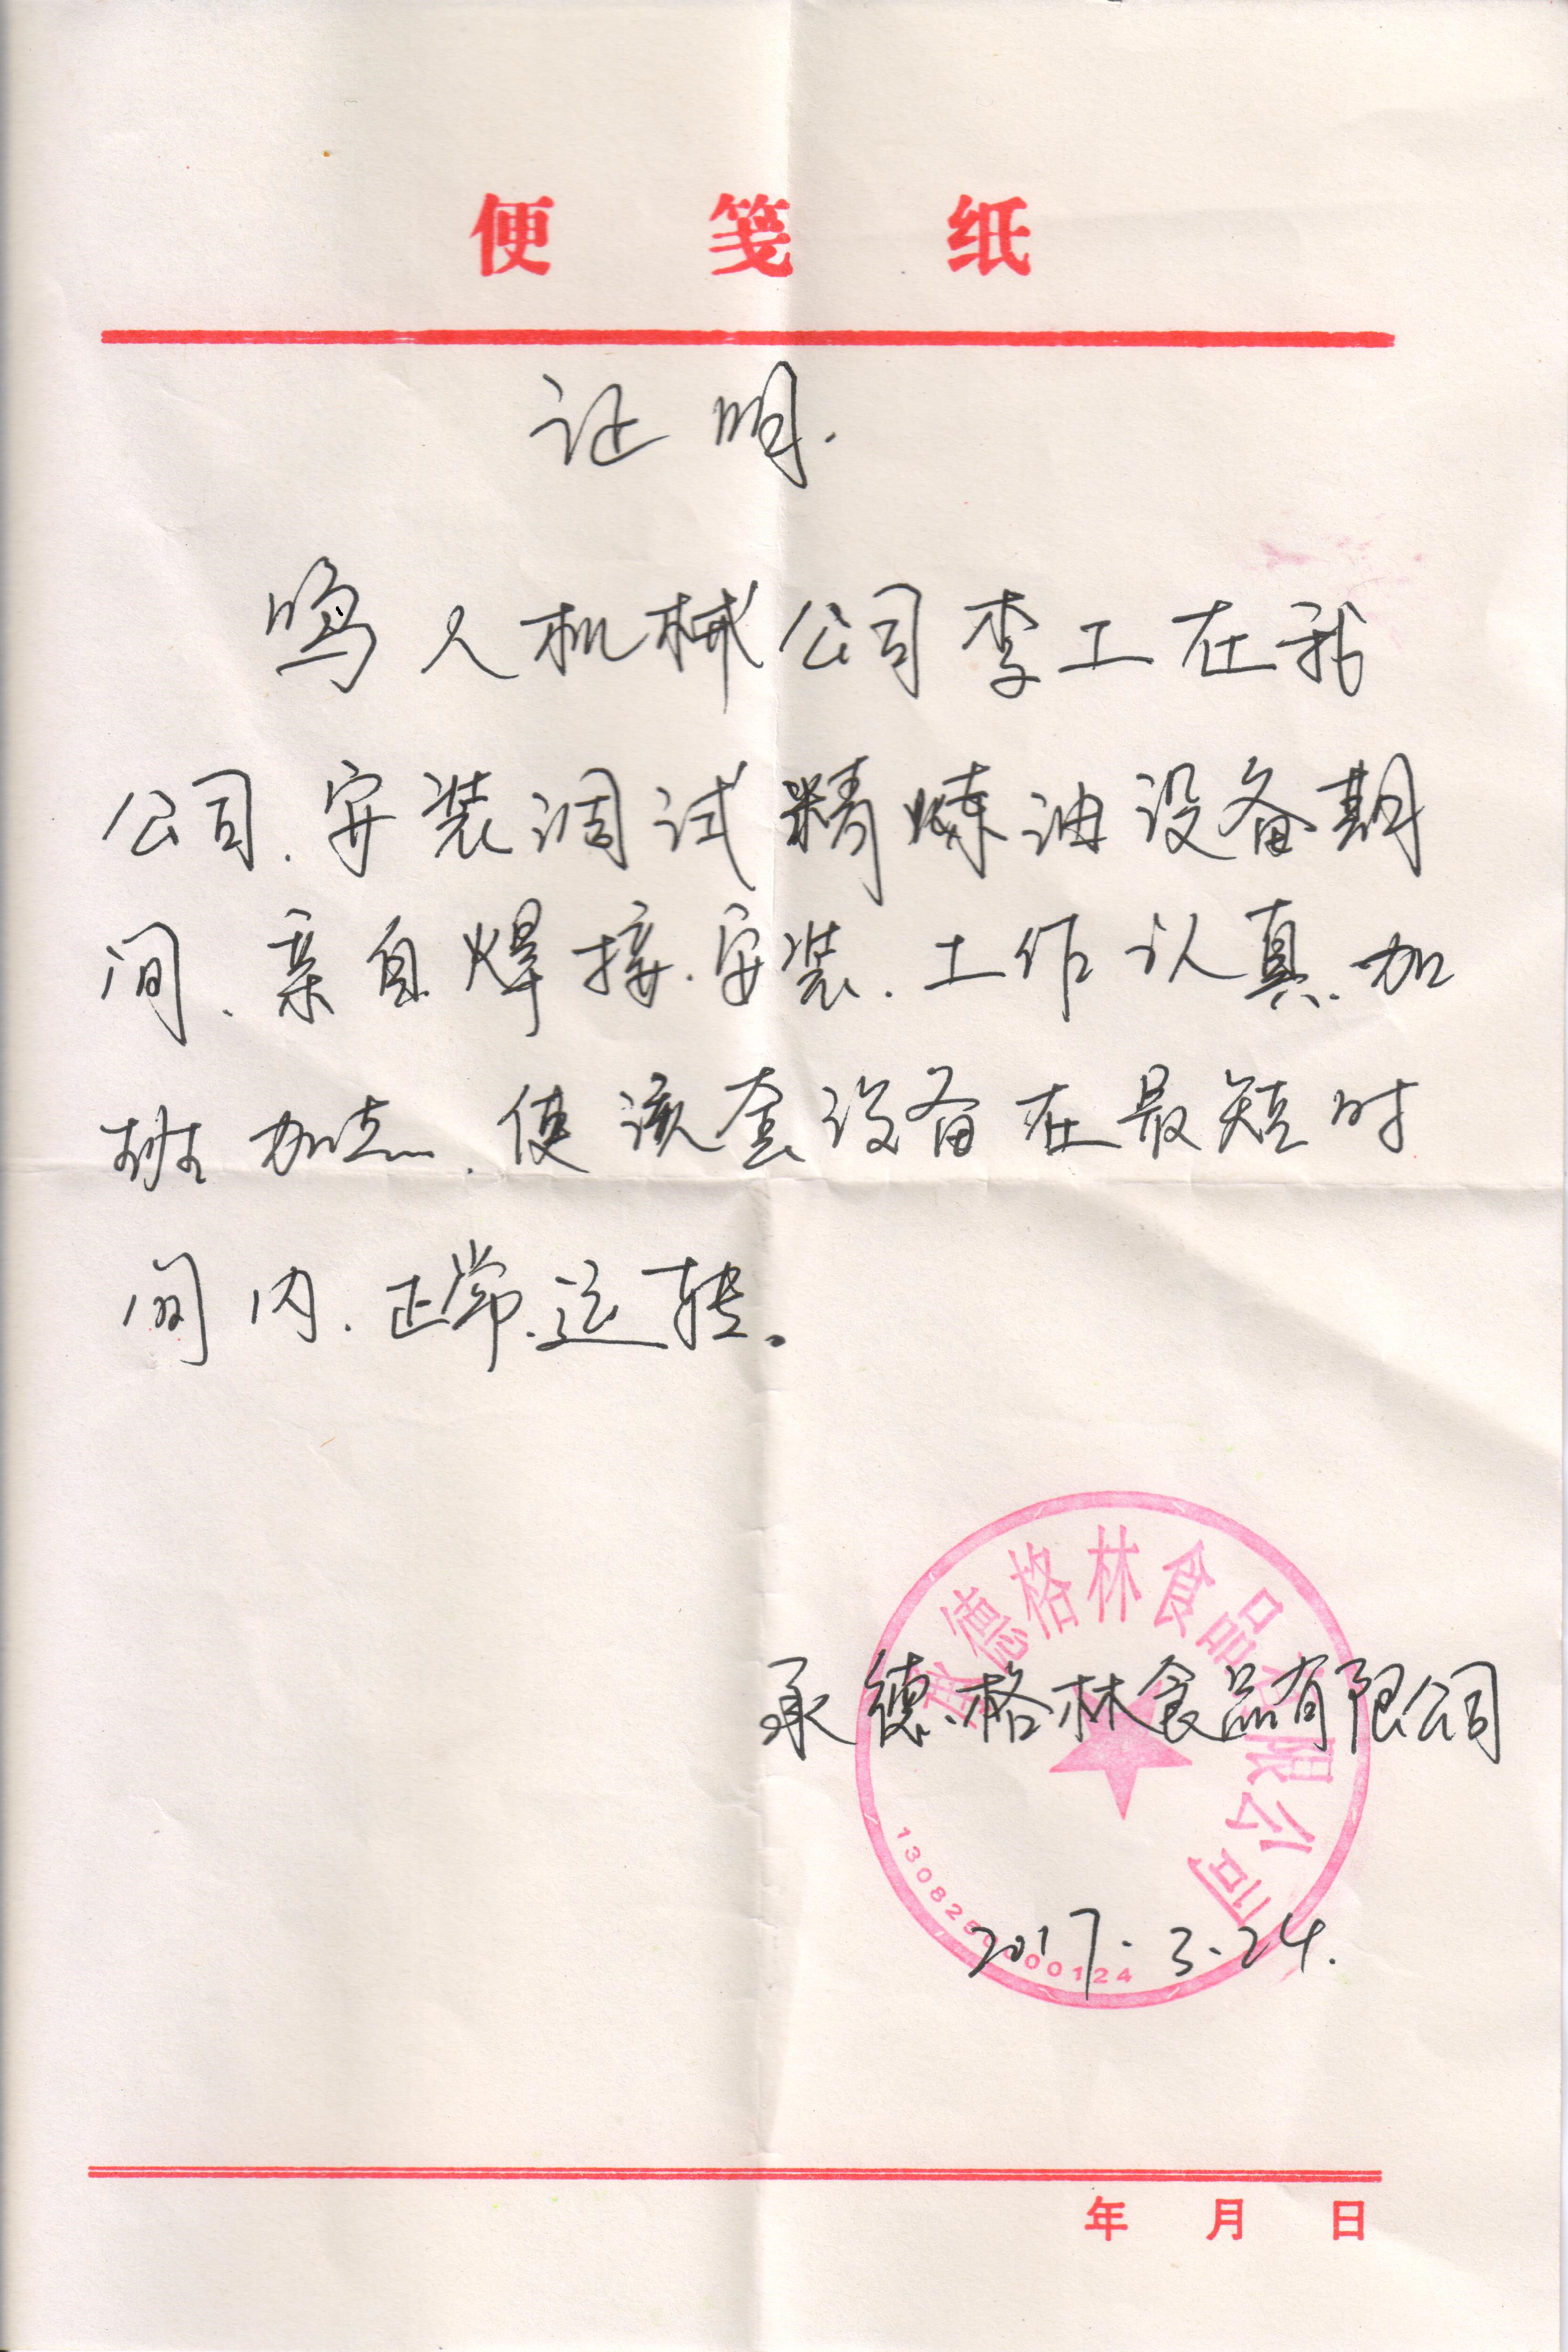 便笺纸
证明.
鸣人机械公司李工在我
公司.安装调试精炼油设备期
间.亲自焊接.安装.工作认真.加
班加点.使该套设备在最短时
间内.正常.运转。
承德格林食品有限公司
承德.格林食品有限公司
2017.3.24.
1308250000124
年 月 日